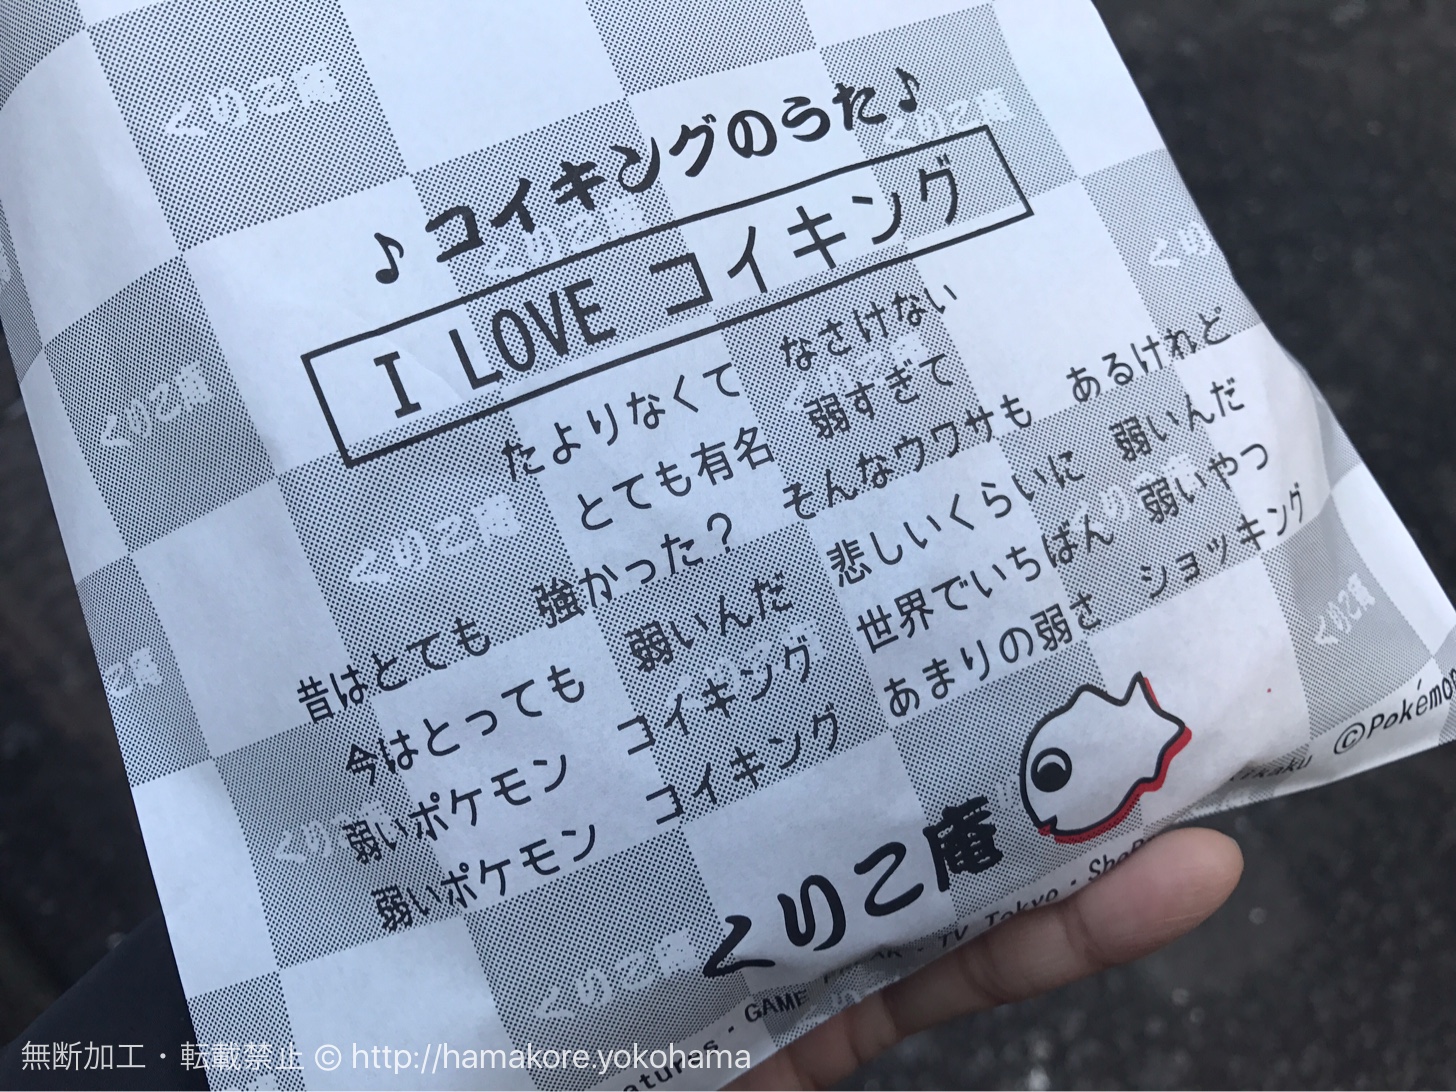 ♪コイキングのうた♪
I LOVE コイキング
たよりなくて なさけない
とても有名 弱すぎて
昔はとても 強かった? そんなウワサも あるけれど
今はとっても 弱いんだ 悲しいくらいに 弱いんだ
弱いポケモン コイキング 世界でいちばん 弱いやつ
弱いポケモン コイキング あまりの弱さ ショッキング
くりこ庵
©Pokémon
GAME FREAK・TV Tokyo・ShoPro
くりこ庵
くりこ庵
くりこ庵
くりこ庵
くりこ庵
くりこ庵
無断加工・転載禁止 © http://hamakore.yokohama